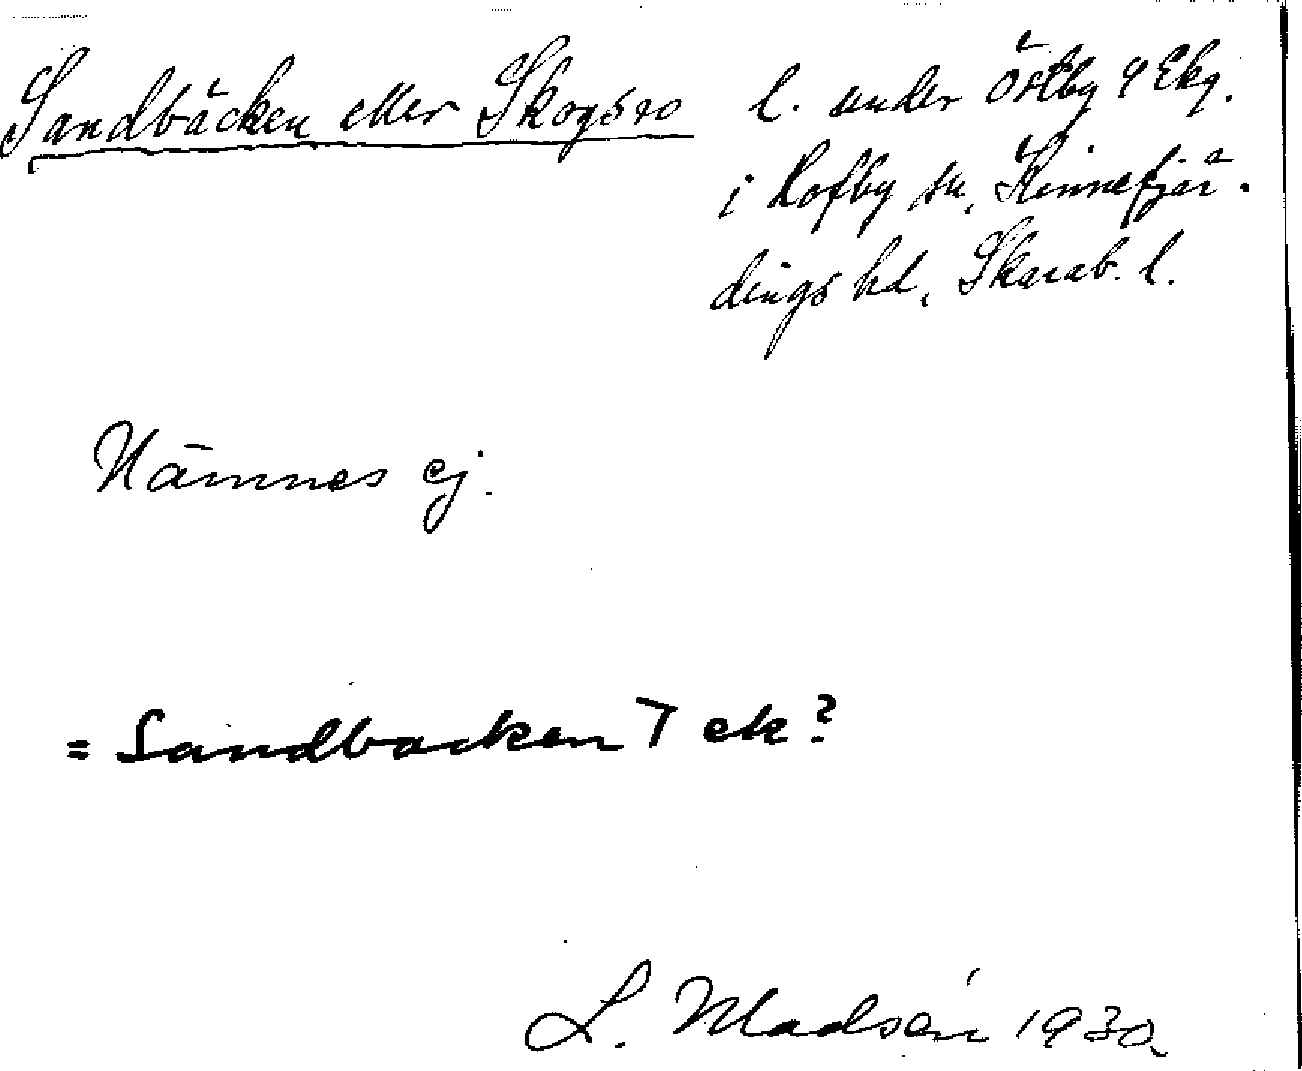 Sandbäcken eller Skogsro l. under Östby 9 Ekg.
i Rofby sn, Kinnefjär-
dings hd, Skarab. l.
Nämnes ej.
= Sandbacken T ek?
L. Madsén 1930.